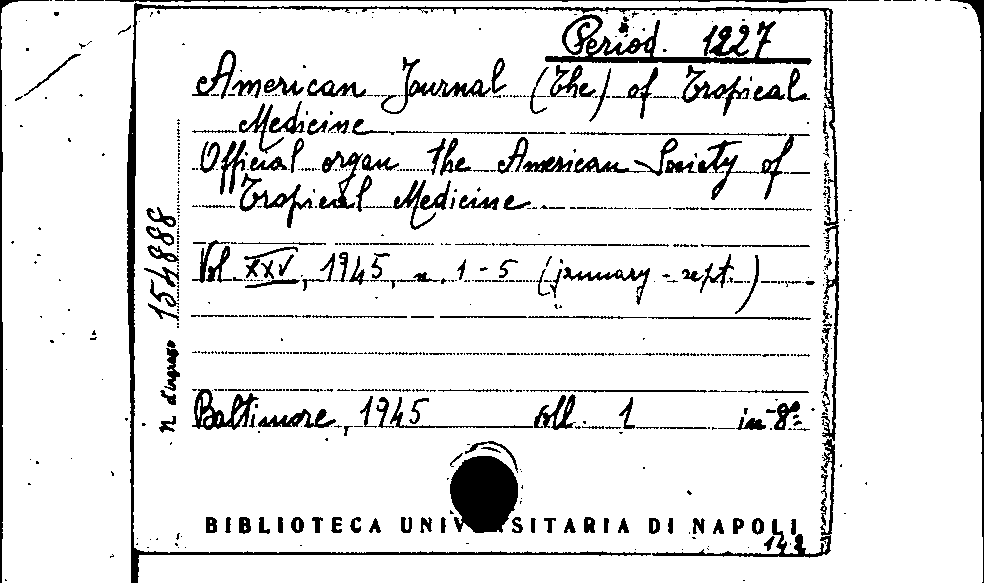 Period. 1227
American Journal (The) of Tropical
Medicine
Official organ the American Society of
Tropical Medicine.
Vol XXV, 1945, n. 1-5 (january - sept.)
Baltimore, 1945 voll. 1 in-8º
N. d'ingresso 154888
BIBLIOTECA UNIVERSITARIA DI NAPOLI